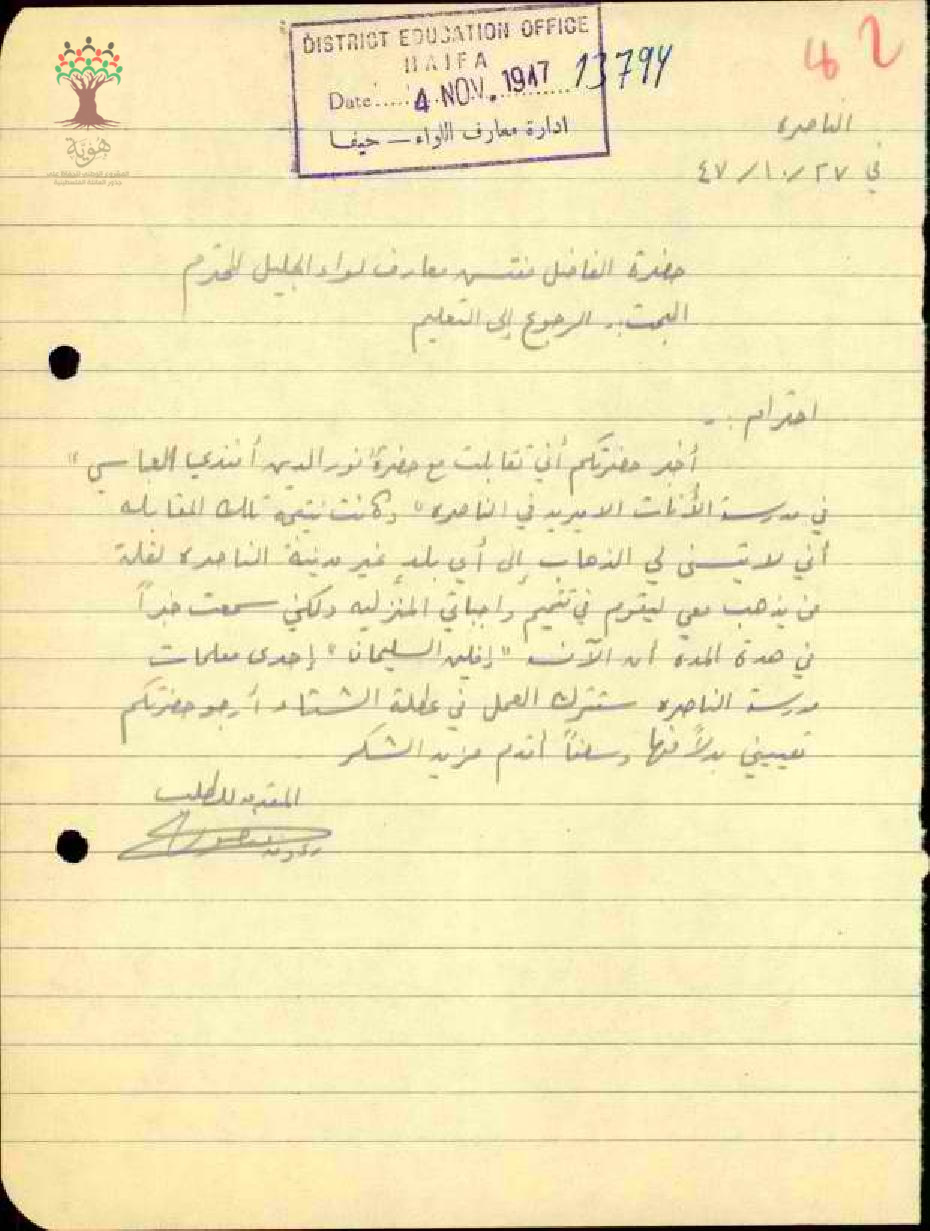 DISTRICT EDUCATION OFFICE
HAIFA
Date 4 NOV. 1947 13794
ادارة معارف اللواء — حيفا
42
هوية
المشروع الوطني للحفاظ على
جذور العائلة الفلسطينية
الناصره
في ٢٧/١٠/٤٧
حضرة الفاضل مفتش معارف لواء الجليل المحترم
البحث:- الرجوع إلى التعليم
احترام :-
أخبر حضرتكم أني تقابلت مع حضرة "نور الدين أفندي العباسي"
في مدرسة الأناث الاميريه في الناصره" وكانت نتيجة تلك المقابله
أني لا يتسنى لي الذهاب إلى أي بلد غير مدينة الناصره لقلة
من يذهب معي ليقوم في تتميم واجباتي المنزليه ولكني سمعت خبراً
في هدة المدة أن الآنسه "إفلين السليمان" إحدى معلمات
مدرسة الناصره ستترك العمل في عطلة الشتاء أرجو حضرتكم
تعييني بدلاً منها وسلفاً أقدم مزيد الشكر
المقدمه للطلب